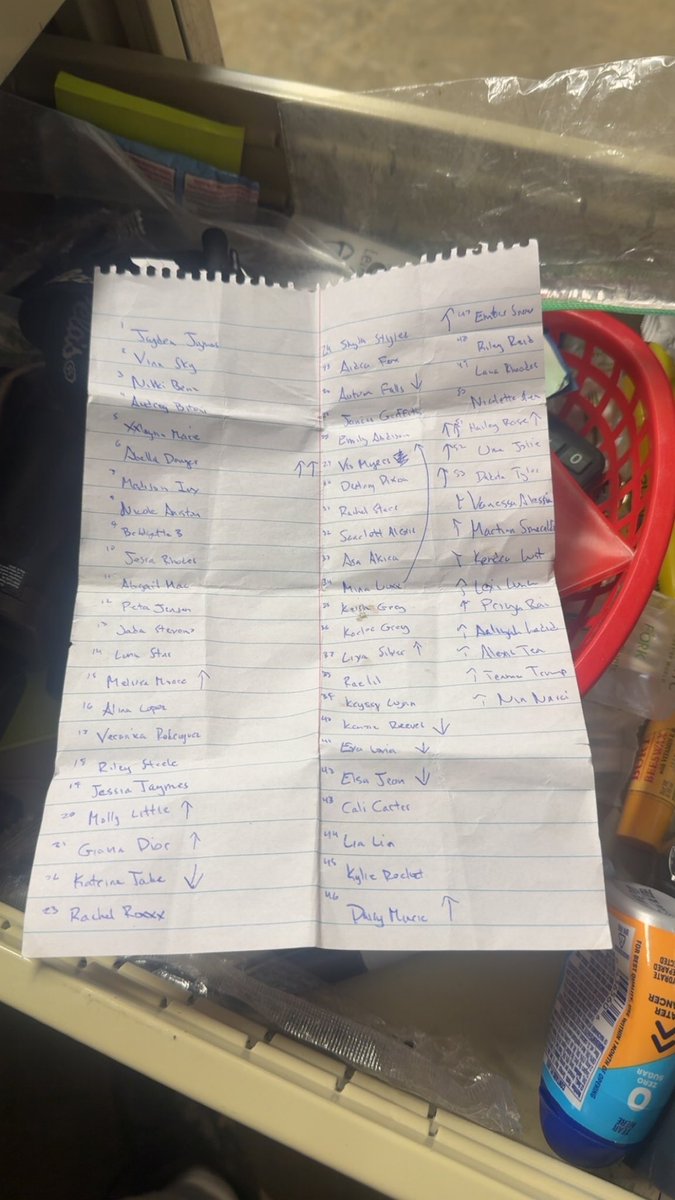 1 Jayden Jaymes
2 Vina Sky
3 Nikki Benz
4 Audrey Bitoni
5 Maric
6 Abella Danger
7 Madison Ivy
8 Nicole Aniston
9 Bridgette B
10 Josia Rhodes
11 Abigail Mac
12 Peta Jensen
13 Jada Stevens
14 Luna Star
15 Melissa Moore ↑
16 Alina Lopez
17 Veronica Rodriguez
18 Riley Steele
19 Jessia Jaymes
20 Molly Little ↑
21 Gianna Dior ↑
22 Katrina Jade ↓
23 Rachel Roxxx
24 Skyla Styles
25 Aidra Fox
26 Autum Falls ↓
Janice Griffith
28 Emily Addison
↑↑ 29 Vic Myers
30 Destiny Dixon
31 Rachel Starr
32 Scarlett Alexis
33 Asa Akira
34 Mina Luxx
35 Keisha Grey
36 Karlee Grey
37 Liya Silver ↑
38 Rachel
39 Keyssy Logan
40 Kenzie Reeves ↓
41 Eva Lovia ↓
42 Elsa Jean ↓
43 Cali Carter
44 Lia Lin
45 Kylie Rocket
46 Daisy Marie ↑
↑ 47 Ember Snow
48 Riley Reid
49 Lana Rhodes
50 Nicolette Shea
↑↑ 51 Hailey Rose ↑
↑ 52 Uma Jolie
↑ 53 Dakota Tyler
↑ Vanessa Alessia
↑ Martina Smeraldi
↑ Kendra Lust
↑ Lexi Luna
↑ Priya Rai
↑ Aaliyah
↑ Alexis Tea
↑ Teanna Trump
↑ Nina
BEESWAX
ZERO
SUGAR
0
TEAR
HERE